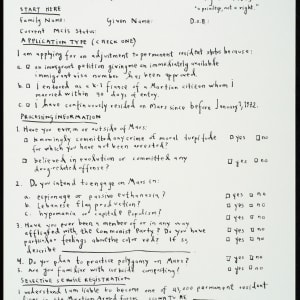 START HERE "a privilege, not a right."
Family Name: Given Name: D.O.B.:
Current MCIS Status:
APPLICATION TYPE (CHECK ONE)
I am applying for an adjustment to permanent resident status because:
a. □ an immigrant petition giving me an immediately available
immigrant visa number has been approved.
b. □ I entered as a K-1 fiancé of a Martian citizen whom I
married within 90 days of entry.
c. □ I have continuously resided on Mars since before January 1, 1972.
PROCESSING INFORMATION
1. Have you ever, in or outside of Mars:
□ knowingly committed any crime of moral turpitude □ yes □ no
for which you have not been arrested?
□ believed in evolution or committed any □ yes □ no
drug-related offense?
2. Do you intend to engage on Mars in:
a. espionage or passive euthanasia? □ yes □ no
b. Lebanese film production? □ yes □ no
c. hypomania or capitol Populism? □ yes □ no
3. Have you ever been a member of or in any way
affiliated with the Communist Party? Do you have □ yes □ no
particular feelings about the color red? If so,
describe
4. Do you plan to practice polygamy on Mars? □ yes □ no
5. Are you familiar with kids competing? □ yes □ no
SELECTIVE SERVICE REGISTRATION
I understand I am liable to become one of 45,000 permanent resident